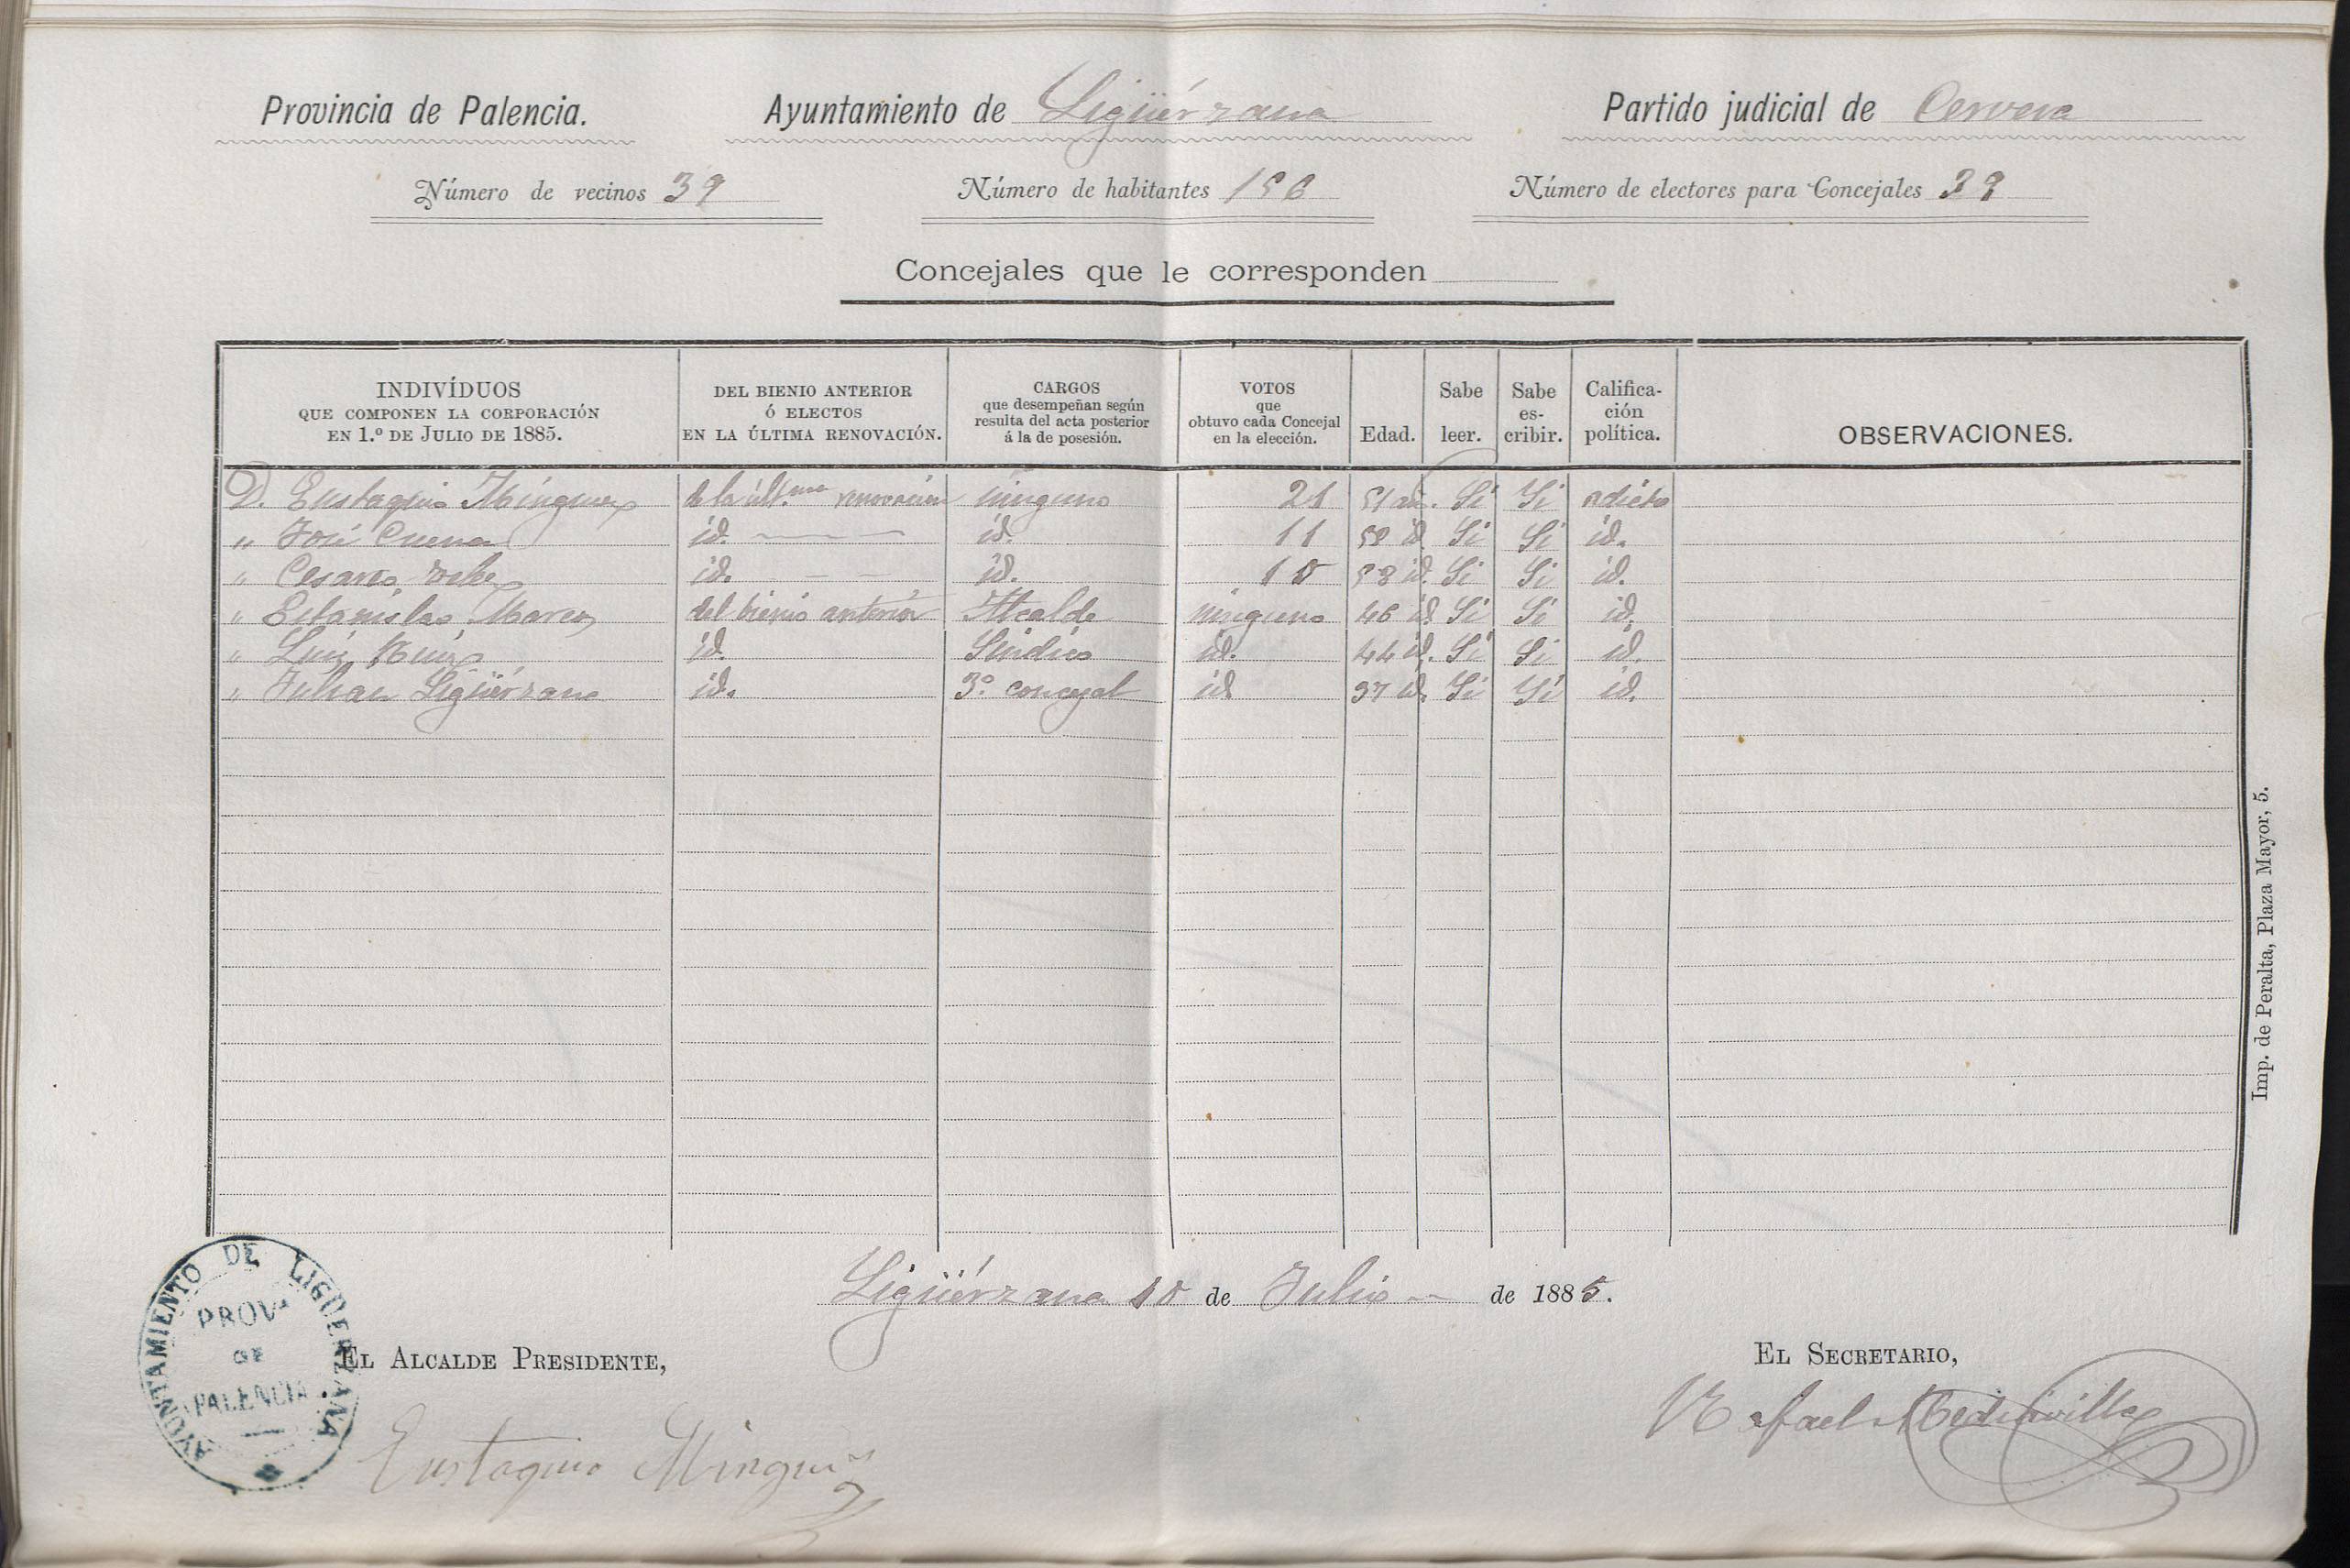 Provincia de Palencia. Ayuntamiento de Ligüérzana Partido judicial de Cervera
Número de vecinos 39 Número de habitantes 156 Número de electores para Concejales 39
Concejales que le corresponden
INDIVÍDUOS QUE COMPONEN LA CORPORACIÓN EN 1.º DE JULIO DE 1885. DEL BIENIO ANTERIOR Ó ELECTOS EN LA ÚLTIMA RENOVACIÓN. CARGOS que desempeñan según resulta del acta posterior á la de posesión. VOTOS que obtuvo cada Concejal en la elección. Edad. Sabe leer. Sabe es-cribir. Califica-ción política. OBSERVACIONES.
D. Eustaquio Minguez de la últ.ma renovacion ninguno 21 51 añ. Si Si adicto
" José Cuena id. id. 11 52 id. Si Si id.
" Cesareo id. id. 10 58 id. Si Si id.
" Estanislao del bienio anterior Alcalde ninguno 46 id Si Si id.
" Luis Ruiz id. Sindico id. 44 id. Si Si id.
" Julian Ligüérzana id. 3.º concejal id 37 id. Si Si id.
Imp. de Peralta, Plaza Mayor, 5.
Ligüérzana 10 de Julio de 1885.
AYUNTAMIENTO DE LIGUERZANA
PROVª
DE
PALENCIA
EL ALCALDE PRESIDENTE, EL SECRETARIO,
Eustaquio Minguez Rafael Mediavilla